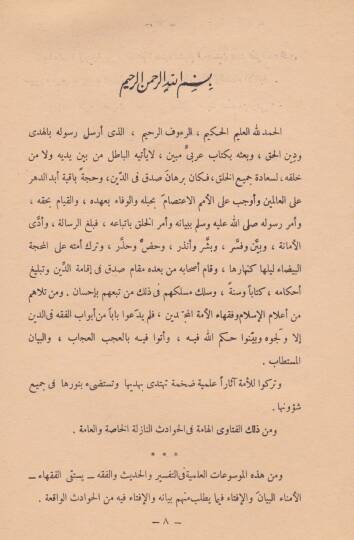 بسم الله الرحمن الرحيم
الحمد لله العليم الحكيم ، الرءوف الرحيم ، الذى أرسل رسوله بالهدى
ودين الحق ، وبعثه بكتاب عربىّ مبين ، لا يأتيه الباطل من بين يديه ولا من
خلفه، لسعادة جميع الخلق، فكان برهان صدق فى الدّين، وحجةً باقية أبد الدهر
على العالمين وأوجب على الأمم الاعتصامَ بحبله والوفاء بعهده ، والقيام بحقه ،
وأمر رسوله صلى الله عليه وسلم ببيانه وأمر الخلق باتباعه ، فبلغ الرسالة ، وأدَّى
الأمانة ، وبيَّن وفسَّر ، وبشَّر وأنذر ، وحضَّ وحذَّر ، وترك أمته على المحجة
البيضاء ليلها كنهارها ، وقام أصحابه من بعده مقام صدق فى إقامة الدِّين وتبليغ
أحكامه ، كتاباً وسنةً ، وسلك مسلكهم فى ذلك من تبعهم بإحسان . ومن تلاهم
من أعلام الإسلام وفقهاء الأمة المجتهدين ، فلم يدَعوا باباً من أبواب الفقه فى الدين
إلا ولجوه وبيَّنوا حكم الله فيه ، وأتوا فيه بالعجب العجاب ، والبيان
المستطاب .
وتركوا للأمة آثاراً علمية ضخمة تهتدى بهديها وتستضىء بنورها فى جميع
شؤونها .
ومن ذلك الفتاوى الهامة فى الحوادث النازلة الخاصة والعامة .
* * *
ومن هذه الموسوعات العلمية فى التفسير والحديث والفقه ــ يستقى الفقهاء ــ
الأمناء البيانَ والإفتاء فيما يطلب منهم بيانه والإفتاء فيه من الحوادث الواقعة .
ــ ٨ ــ